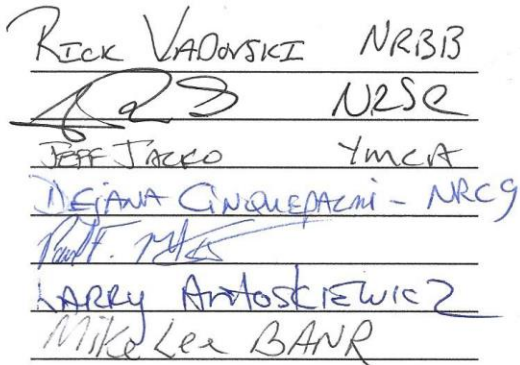 RICK VADOVSKI NRBB
NRSC
JEFF JACKO YMCA
DEJANA CINQUEPALMI - NRCG
LARRY ANTOSKIEWICZ
Mike Lee BANR